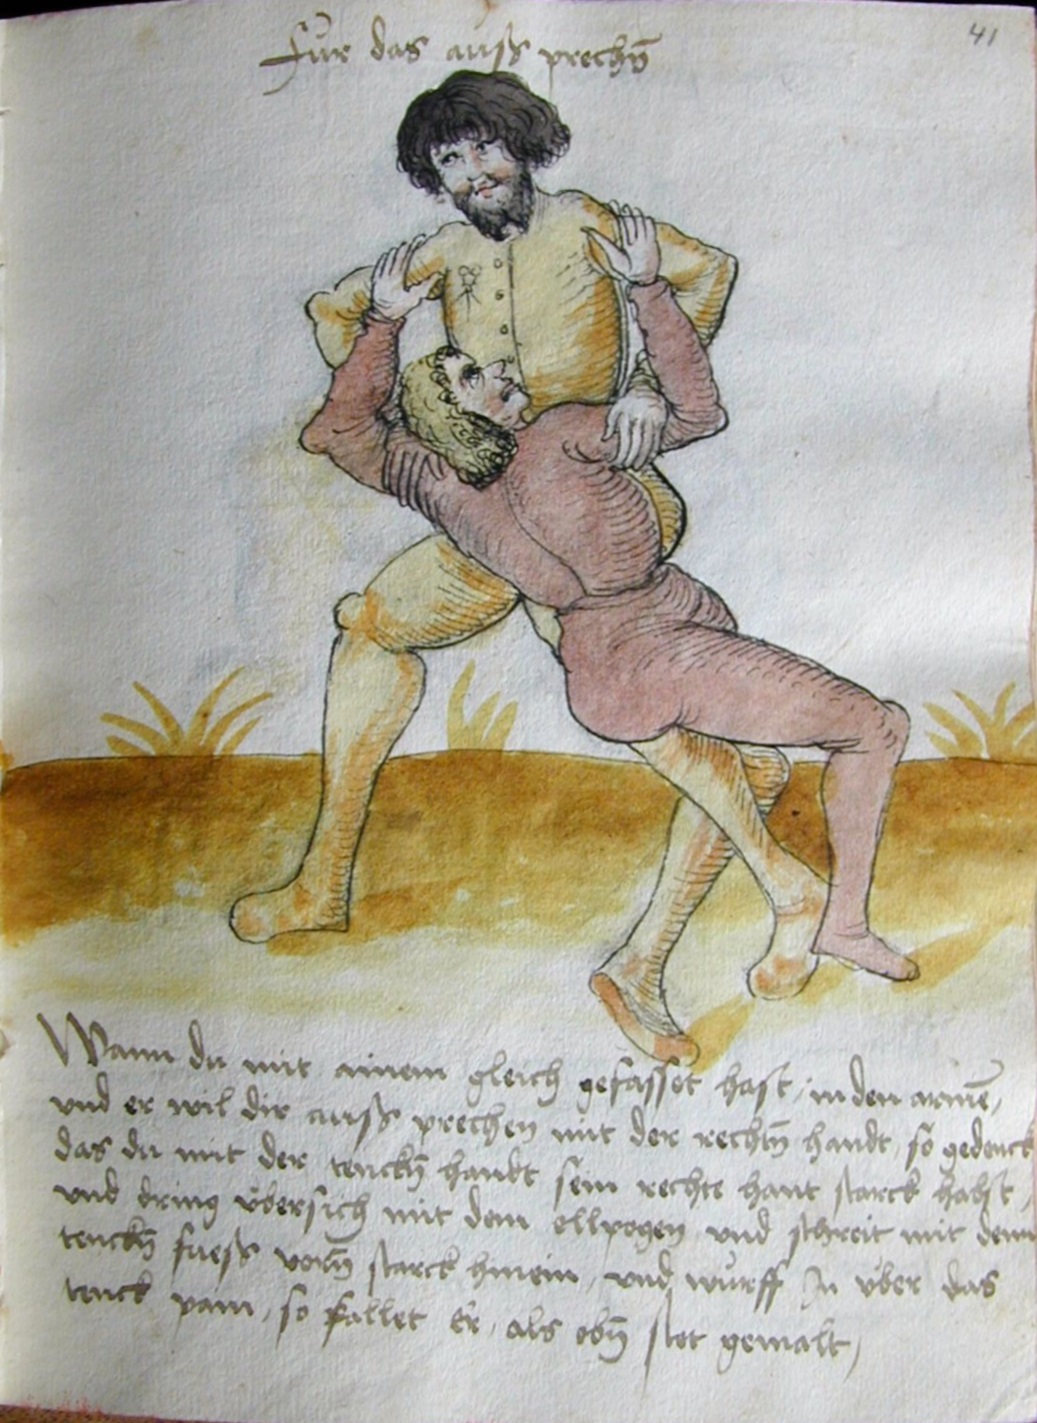 41
Für das auss prechn̄
Wann du mit ainem gleich gefasset hast, in den armē,
und er wil dir auss prechen mit der rechtn̄ handt, so gedenck
das du mit der tenckn̄ handt sein rechte hant starck habst,
und dring übersich mit dem ellpogen, und schreit mit dem
tenckn̄ fuess vorn̄ starck hinein, und würff In über das
tenck pain, so fallet Er, als obn̄ stet gemalt,